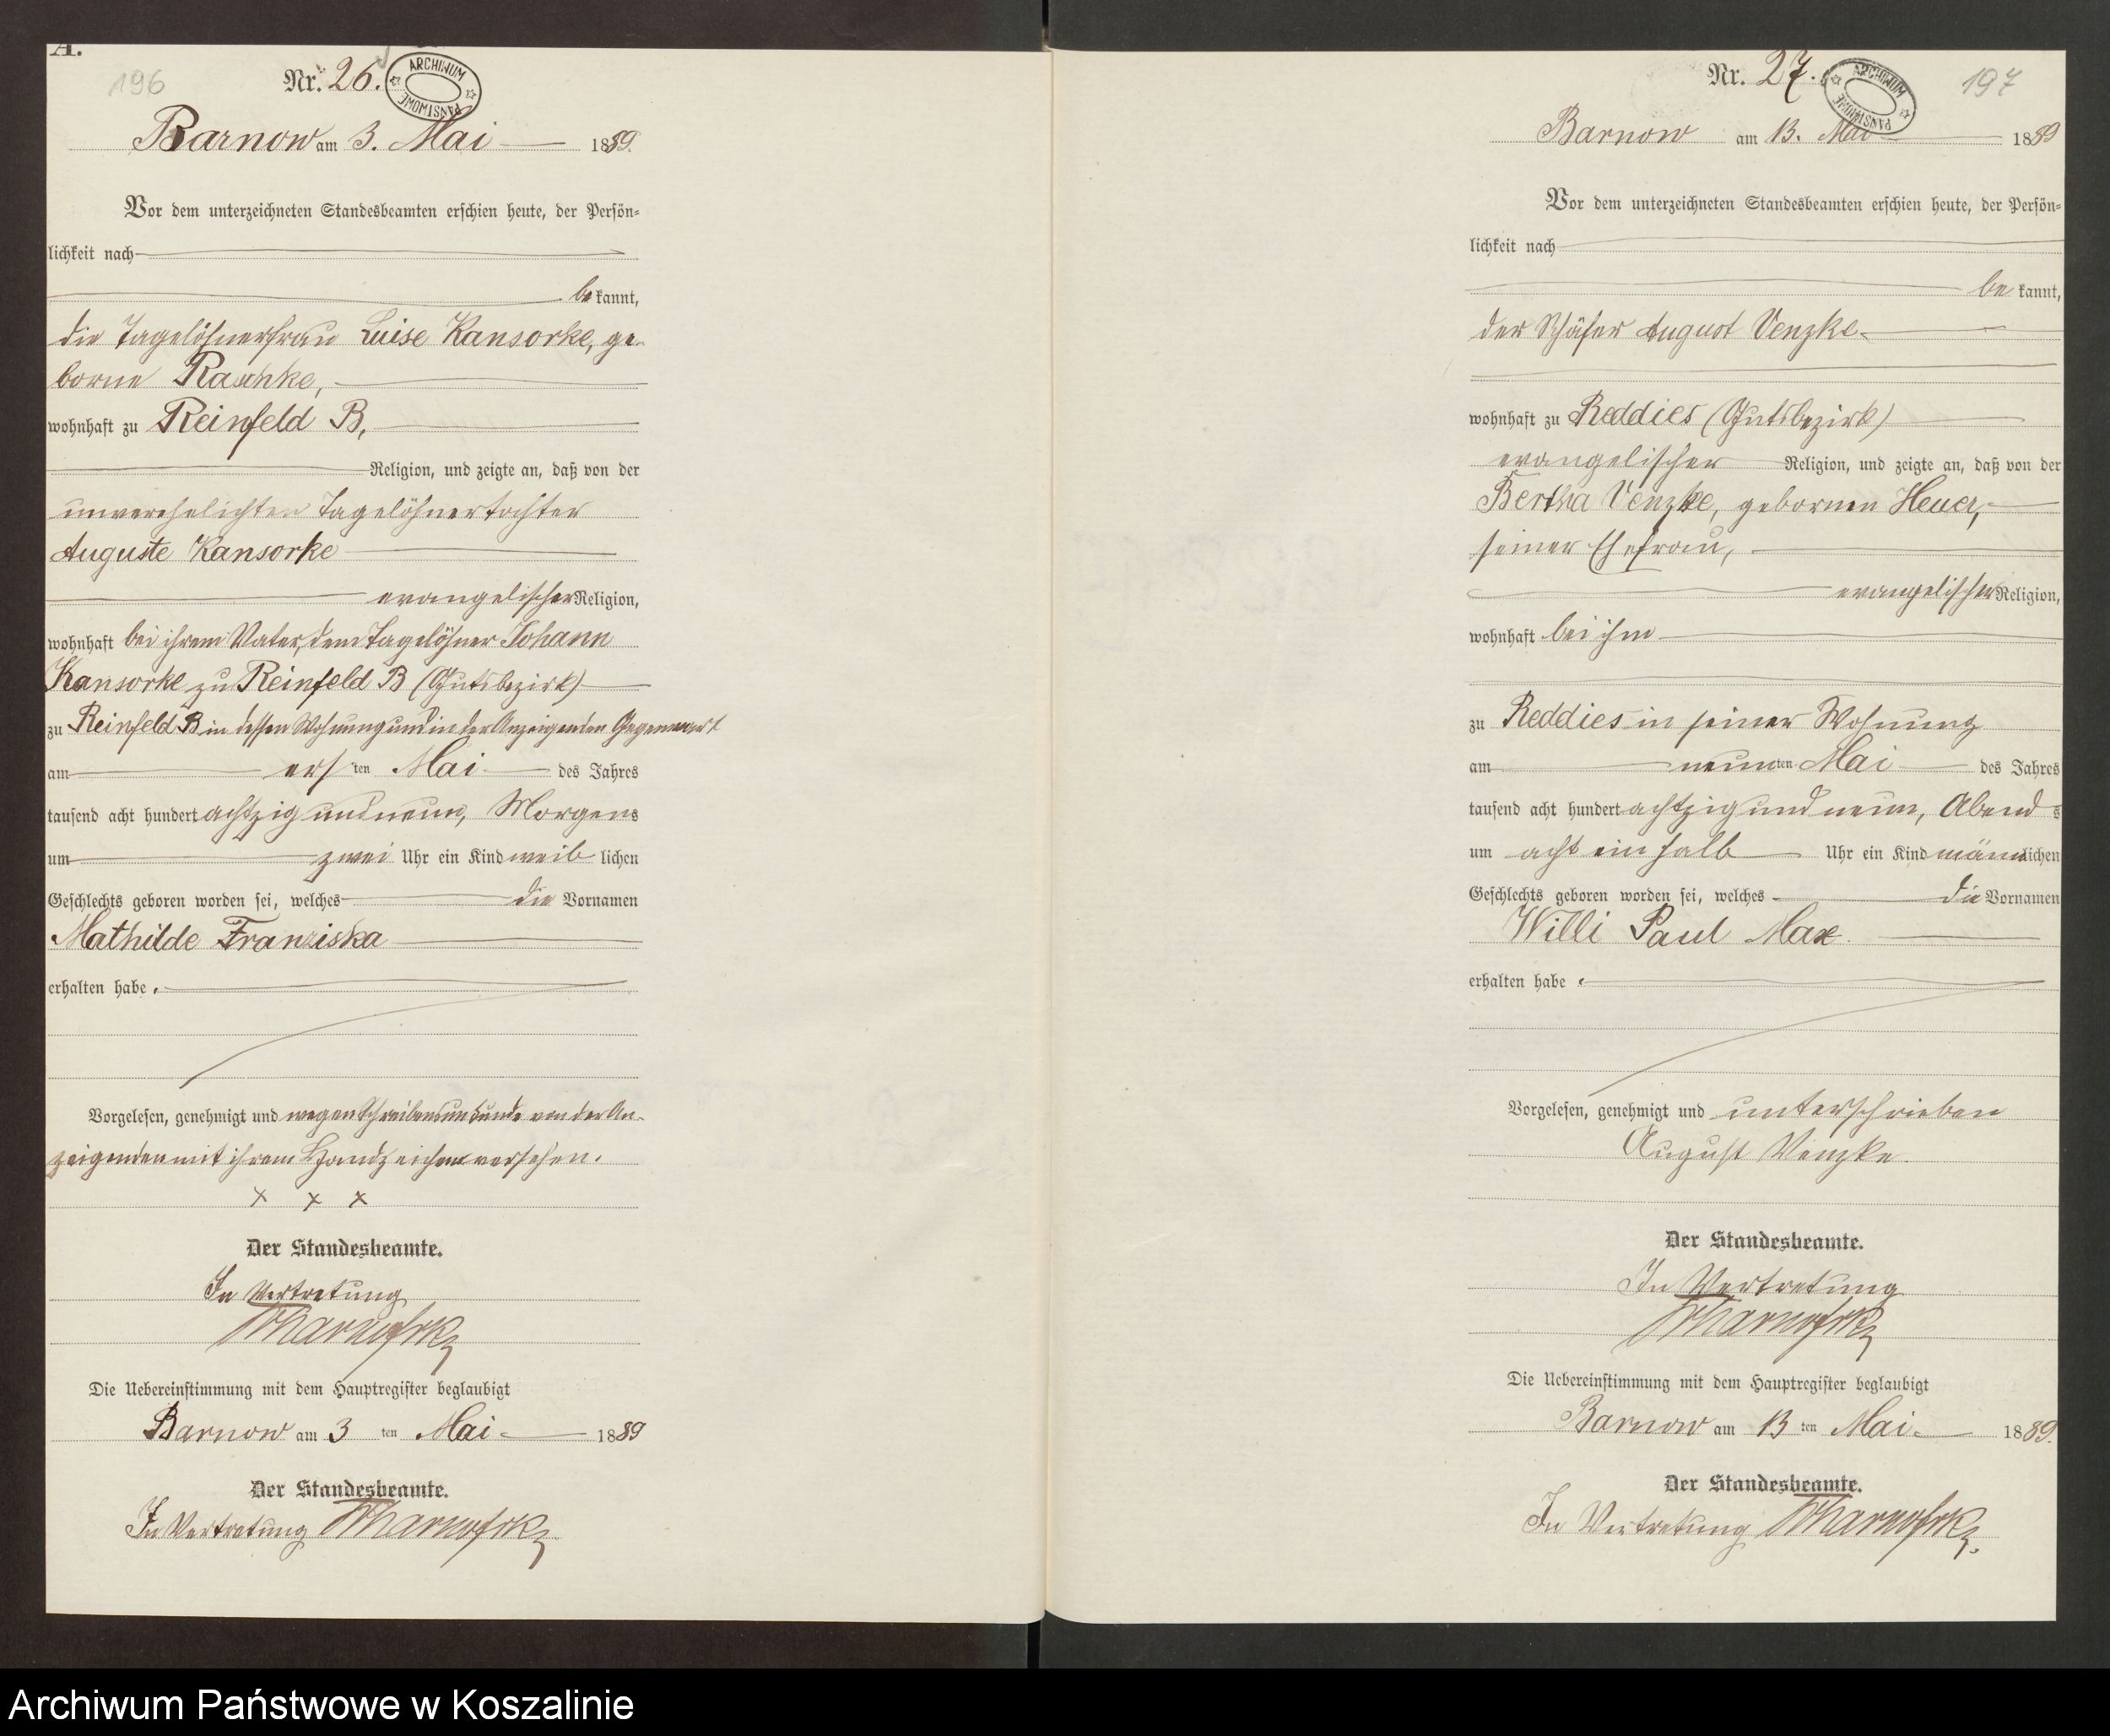 A.
196
Nr. 26.
ARCHIWUM PAŃSTWOWE
Barnow am 3. Mai 1889.
Vor dem unterzeichneten Standesbeamten erschien heute, der Persön-
lichkeit nach
bekannt,
die Tagelöhnerfrau Luise Kansorke, ge-
borne Raschke,
wohnhaft zu Reinfeld B,
Religion, und zeigte an, daß von der
unverehelichten Tagelöhnertochter
Auguste Kansorke
evangelischer Religion,
wohnhaft bei ihrem Vater, dem Tagelöhner Johann
Kansorke zu Reinfeld B (Gutsbezirk)
zu Reinfeld B in dessen Wohnung und in der Anzeigenden Gegenwart
am ersten Mai des Jahres
tausend acht hundert achtzig und neun, Morgens
um zwei Uhr ein Kind weiblichen
Geschlechts geboren worden sei, welches die Vornamen
Mathilde Franziska
erhalten habe.
Vorgelesen, genehmigt und wegen Schreibensunkunde von der An-
zeigenden mit ihrem Handzeichen versehen.
x x x
Der Standesbeamte.
In Vertretung
Die Uebereinstimmung mit dem Hauptregister beglaubigt
Barnow am 3ten Mai 1889
Der Standesbeamte.
In Vertretung
Nr. 27.
ARCHIWUM PAŃSTWOWE
197
Barnow am 13. Mai 1889
Vor dem unterzeichneten Standesbeamten erschien heute, der Persön-
lichkeit nach
bekannt,
der Schäfer August Venzke
wohnhaft zu Reddies (Gutsbezirk)
evangelischer Religion, und zeigte an, daß von der
Bertha Venzke, gebornen Heuer,
seiner Ehefrau,
evangelischer Religion,
wohnhaft bei ihm
zu Reddies in seiner Wohnung
am neunten Mai des Jahres
tausend acht hundert achtzig und neun, Abends
um acht ein halb Uhr ein Kind männlichen
Geschlechts geboren worden sei, welches die Vornamen
Willi Paul Max
erhalten habe.
Vorgelesen, genehmigt und unterschrieben
August Venzke.
Der Standesbeamte.
In Vertretung
Die Uebereinstimmung mit dem Hauptregister beglaubigt
Barnow am 13ten Mai 1889.
Der Standesbeamte.
In Vertretung
Archiwum Państwowe w Koszalinie